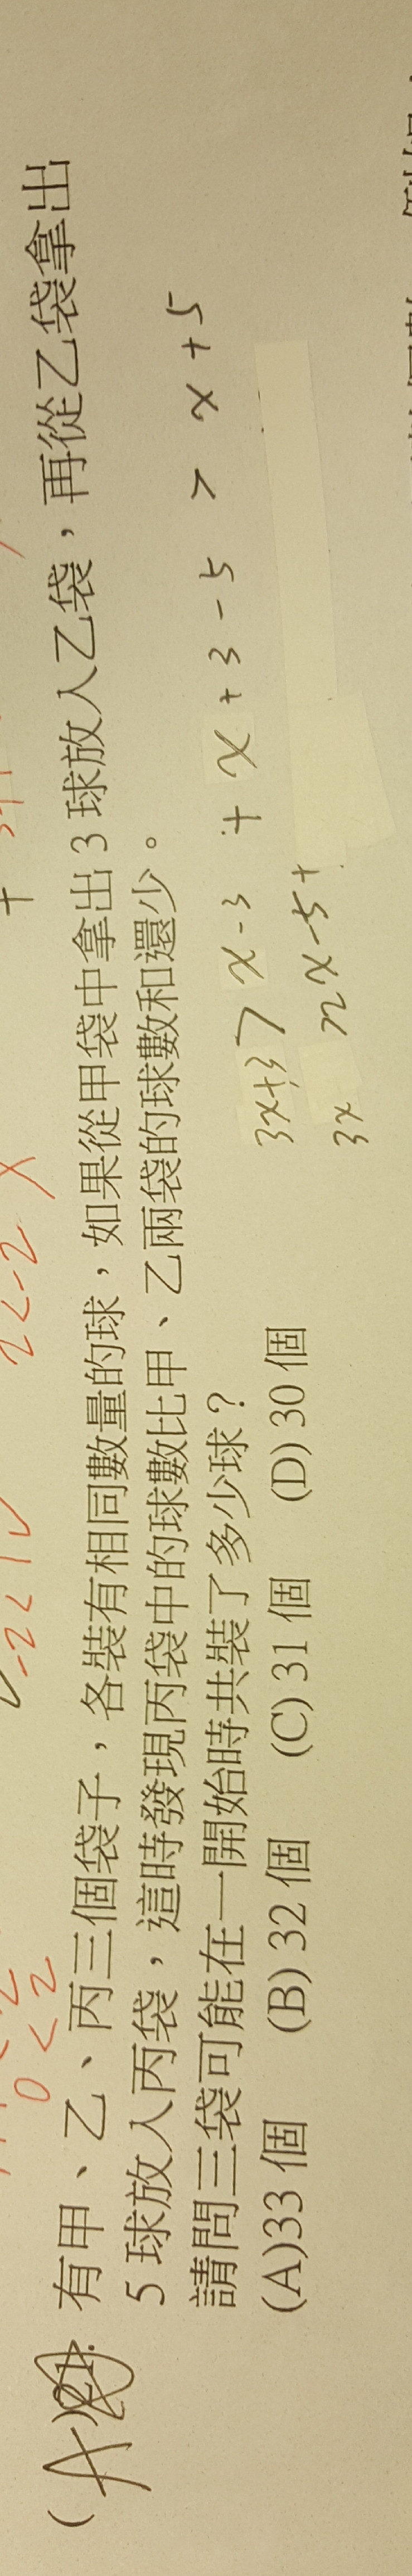 (A)21. 有甲、乙、丙三個袋子，各裝有相同數量的球，如果從甲袋中拿出 3 球放入乙袋，再從乙袋拿出
5 球放入丙袋，這時發現丙袋中的球數比甲、乙兩袋的球數和還少。
請問三袋可能在一開始時共裝了多少球？
(A)33 個 (B) 32 個 (C) 31 個 (D) 30 個
x-3 + x+3-5 > x+5
3x+3>
3x